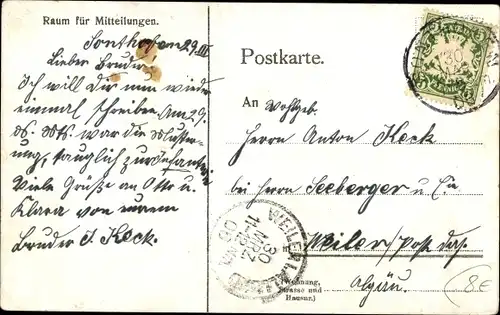 Raum für Mitteilungen.
Sonthofen 29.III.
Lieber Bruder!
Ich will Dir nun wieder
einmal schreiben. Am 29.
ds. Mts. war die Muster-
ung, tauglich zur Infanterie
Viele Grüße an Otto u.
Klara von eurem
Bruder J. Keck.
Postkarte.
An Wohlgeb.
Herrn Anton Keck
bei Herrn Seeberger u. Cie
Weiler / Post das.
Algäu.
(Wohnung,
Strasse und
Hausnr.)
WEILER
30
MRZ.
06
8€